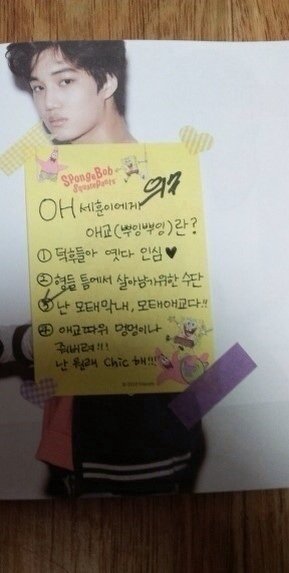 SpongeBob
SquarePants
OH 세훈이에게
애교(뿌잉뿌잉)란?
① 덕후들아 옛다 인심♥
② 형들 틈에서 살아남기위한 수단
③ 난 모태막내, 모태애교다!!
④ 애교따위 멍멍이나
줘버려!!!
난 원래 chic 해!!!